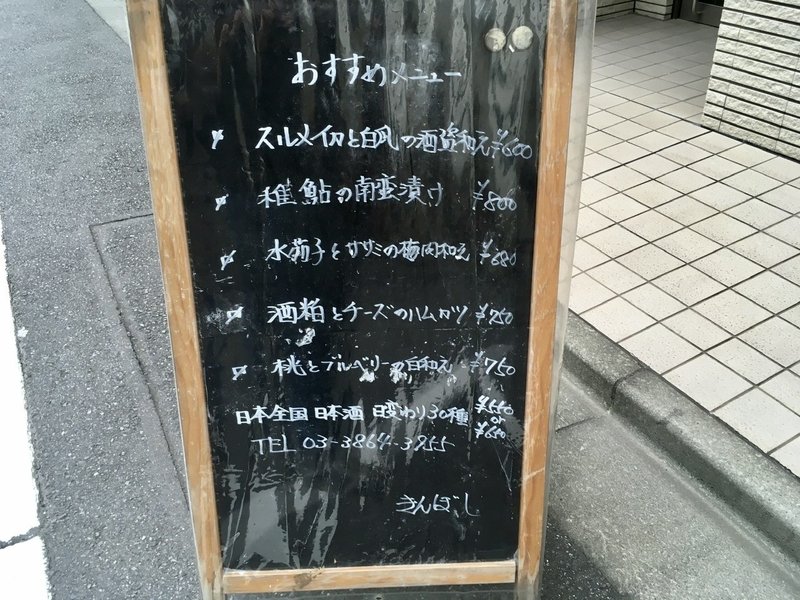 おすすめメニュー
スルメイカと白瓜の酒盗和え ¥600
稚鮎の南蛮漬け ¥800
水茄子とササミの梅肉和え ¥680
酒粕とチーズのハムカツ ¥750
桃とブルーベリーの白和え ¥750
日本全国 日本酒 日変わり30種 ¥550 or ¥650
TEL 03-3864-3955
きんぼし